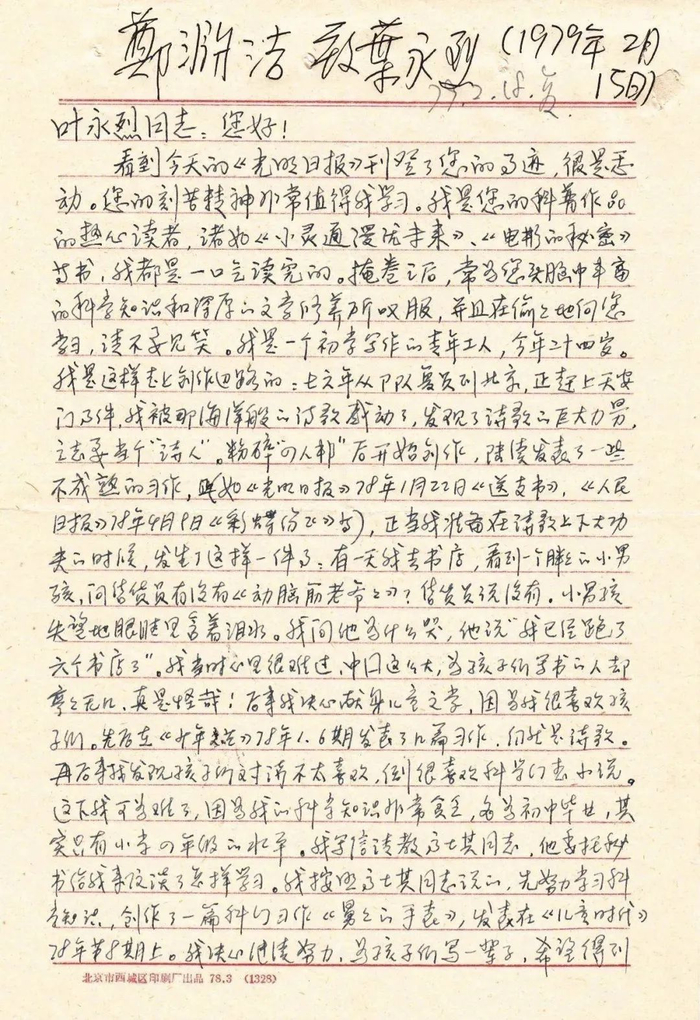 鄭淵洁致葉永烈(1979年2月
15日)
79.2.18.复.
叶永烈同志：您好！
看到今天的《光明日报》刊登了您的事迹，很是感
动。您的刻苦精神非常值得我学习。我是您的科普作品
的热心读者，诸如《小灵通漫游未来》、《电影的秘密》
等书，我都是一口气读完的。掩卷之后，常为您头脑中丰富
的科学知识和深厚的文学修养所叹服，并且在偷偷地向您
学习，请不要见笑。我是一个初学写作的青年工人，今年二十四岁。
我是这样走上创作道路的：七六年从部队复员到北京，正赶上天安
门事件，我被那海洋般的诗歌感动了，发现了诗歌的巨大力量，
立志要当个"诗人"。粉碎"四人邦"后开始创作，陆续发表了一些
不成熟的习作，(如《光明日报》78年1月22日《送支书》，《人民
日报》78年4月9日《彩蝶纷飞》等)，正当我准备在诗歌上下大功
夫的时候，发生了这样一件事：有一天我去书店，看到一个胖胖的小男
孩，问售货员有没有《动脑筋爷爷》？售货员说没有。小男孩
失望地眼睛里含着泪水。我问他为什么哭，他说"我已经跑了
六个书店了"。我当时心里很难过，中国这么大，为孩子们写书的人却
寥寥无几，真是怪哉！后来我决心献身儿童文学，因为我很喜欢孩
子们。先后在 78年1.6期发表了几篇习作，仍然是诗歌。
再后来我发现孩子们对诗不太喜欢，倒很喜欢科学幻想小说。
这下我可为难了，因为我的科学知识非常贫乏，名为初中毕业，其
实只有小学四年级的水平。我写信请教高士其同志，他委托秘
书给我来信谈了怎样学习。我按照高士其同志说的，先努力学习科
学知识，创作了一篇科幻习作《舅舅的手表》，发表在《儿童时代》
78年第8期上。我决心继续努力，为孩子们写一辈子，希望得到
北京市西城区印刷厂出品 78.3 (1328)